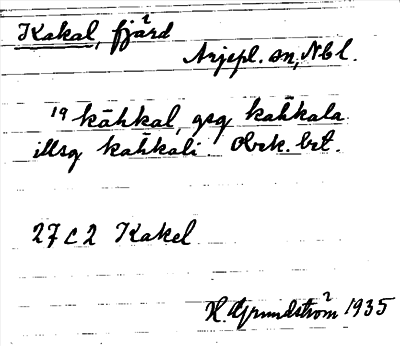 Kakal, fjärd
Arjepl. sn, Nbl.
19 kāhkal, gsg kahkala
illsg kahkali. Obek. bet.
27 C 2 Kakel
H. Grundström 1935